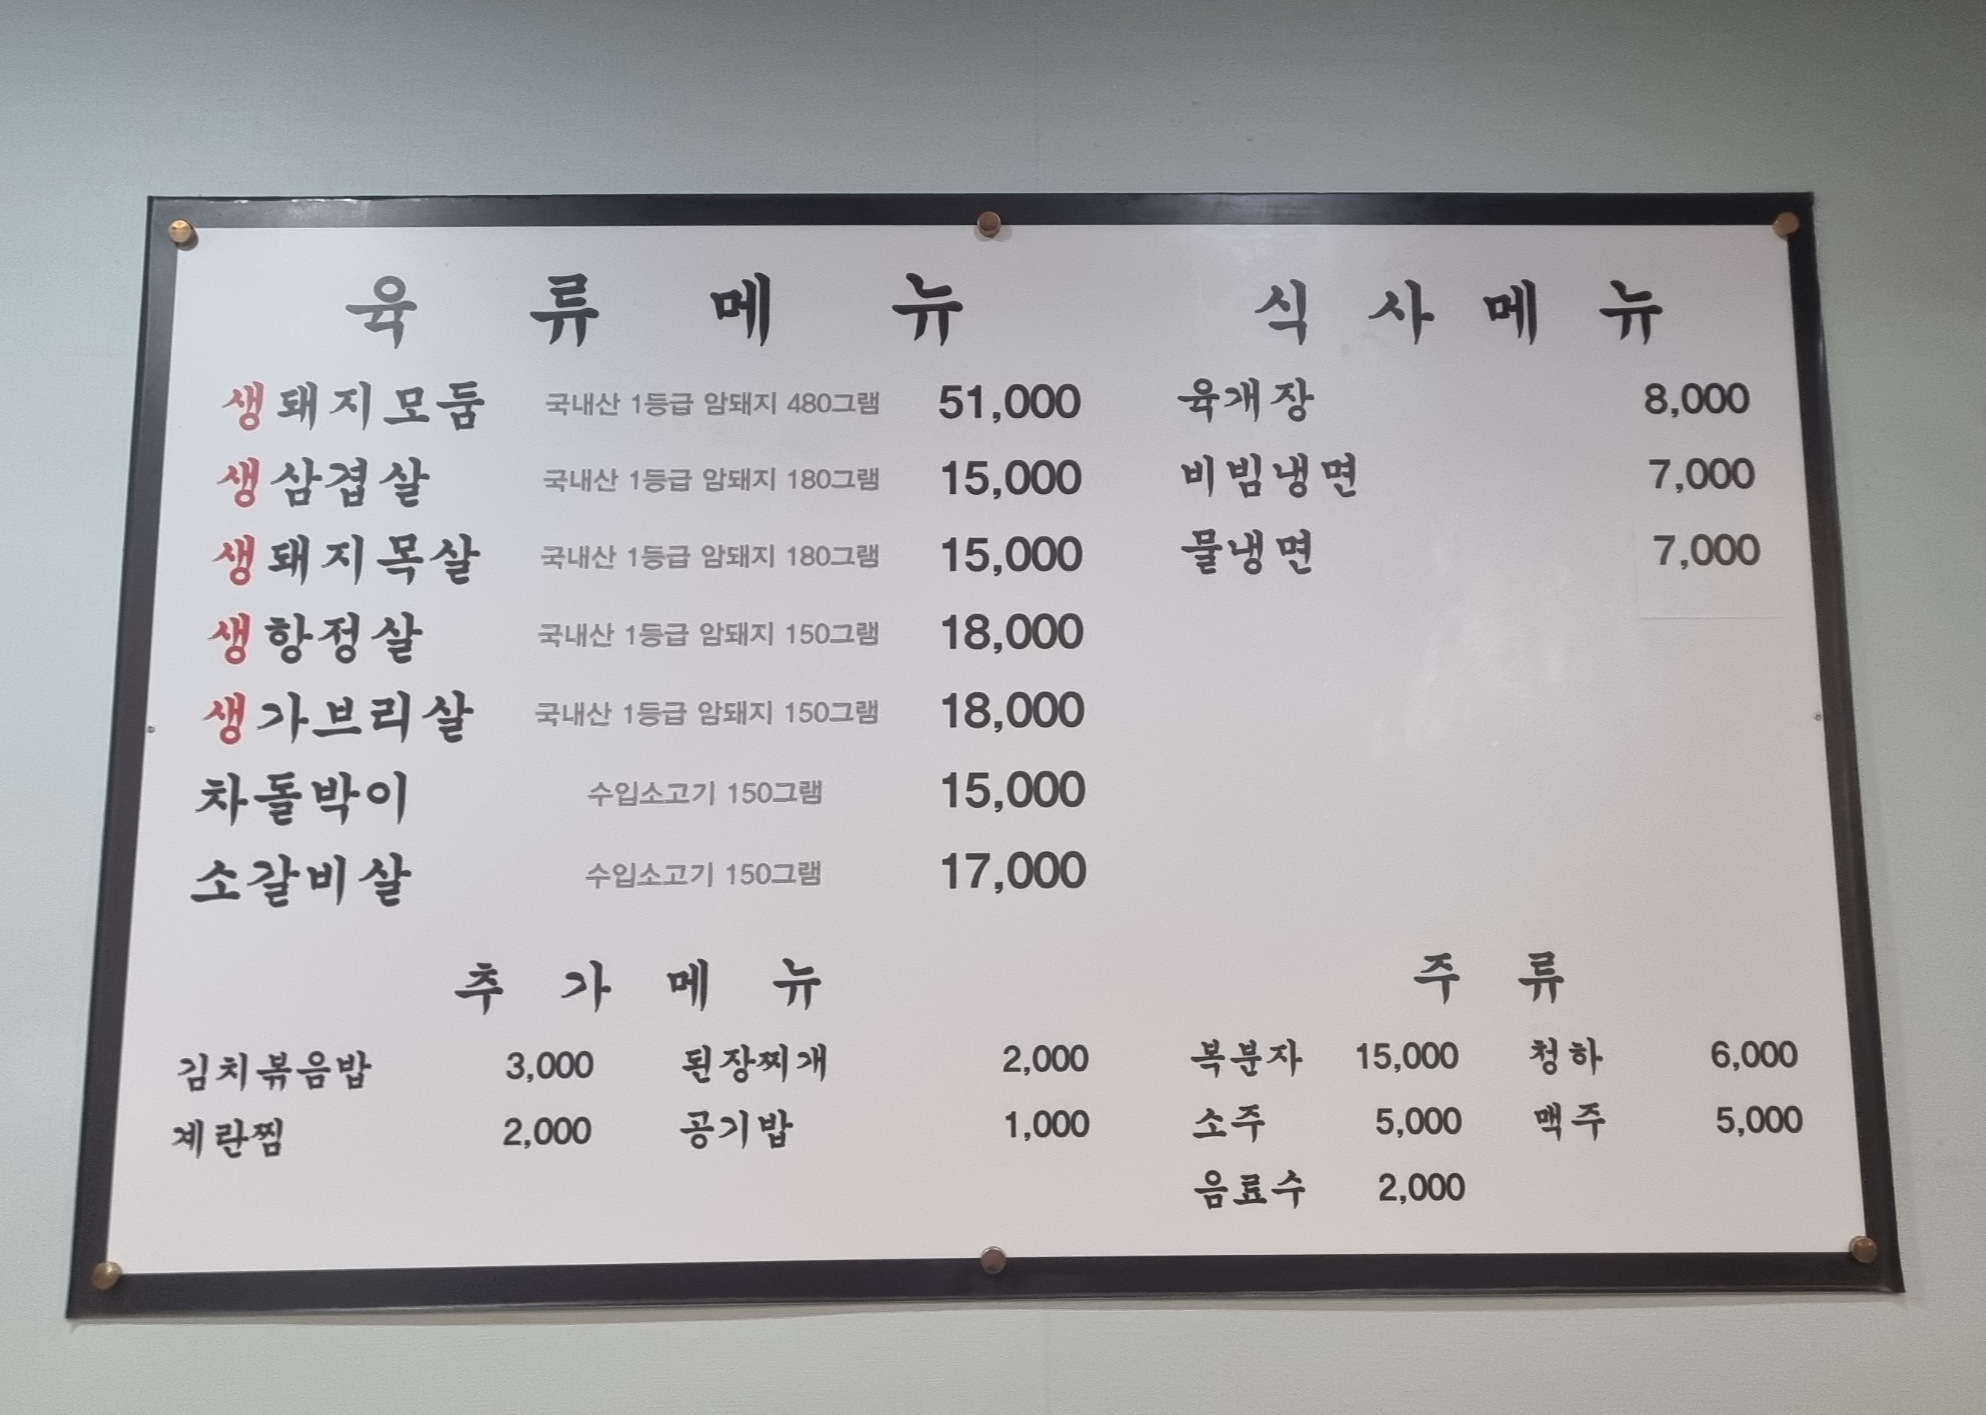 육류메뉴
생돼지모둠 국내산 1등급 암돼지 480그램 51,000
생삼겹살 국내산 1등급 암돼지 180그램 15,000
생돼지목살 국내산 1등급 암돼지 180그램 15,000
생항정살 국내산 1등급 암돼지 150그램 18,000
생가브리살 국내산 1등급 암돼지 150그램 18,000
차돌박이 수입소고기 150그램 15,000
소갈비살 수입소고기 150그램 17,000
식사메뉴
육개장 8,000
비빔냉면 7,000
물냉면 7,000
추가메뉴
김치볶음밥 3,000 된장찌개 2,000
계란찜 2,000 공기밥 1,000
주류
복분자 15,000 청하 6,000
소주 5,000 맥주 5,000
음료수 2,000